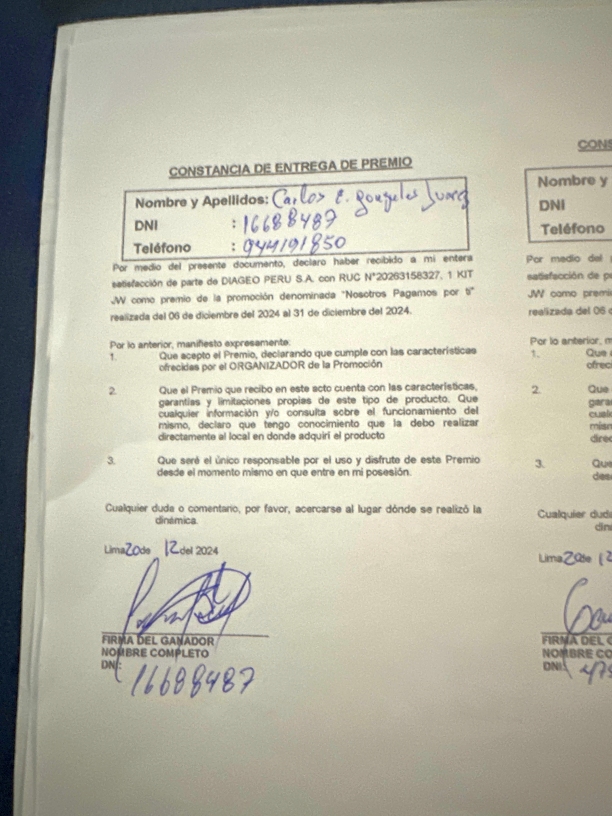 CONSTANCIA DE ENTREGA DE PREMIO
Nombre y Apellidos: Carlos E. Gonzales Juarez
DNI : 16688487
Teléfono : 944191850
Por medio del presente documento, declaro haber recibido a mi entera
satisfacción de parte de DIAGEO PERU S.A. con RUC N°20263158327, 1 KIT
JW como premio de la promoción denominada "Nosotros Pagamos por ti"
realizada del 06 de diciembre del 2024 al 31 de diciembre del 2024.
Por lo anterior, manifiesto expresamente:
1. Que acepto el Premio, declarando que cumple con las características
ofrecidas por el ORGANIZADOR de la Promoción
2. Que el Premio que recibo en este acto cuenta con las características,
garantías y limitaciones propias de este tipo de producto. Que
cualquier información y/o consulta sobre el funcionamiento del
mismo, declaro que tengo conocimiento que la debo realizar
directamente al local en donde adquirí el producto
3. Que seré el único responsable por el uso y disfrute de este Premio
desde el momento mismo en que entre en mi posesión.
Cualquier duda o comentario, por favor, acercarse al lugar dónde se realizó la
dinámica.
Lima 20 de 12 del 2024
FIRMA DEL GANADOR
NOMBRE COMPLETO
DNI: 16688487
CONS
Nombre y
DNI
Teléfono
Por medio del
satisfacción de p
JW como premi
realizada del 06
Por lo anterior, m
1. Que
ofreci
2. Que
gara
cual
mism
dire
3. Que
des
Cualquier duda
din
Lima 20 de 12
FIRMA DEL G
NOMBRE CO
DNI: 47